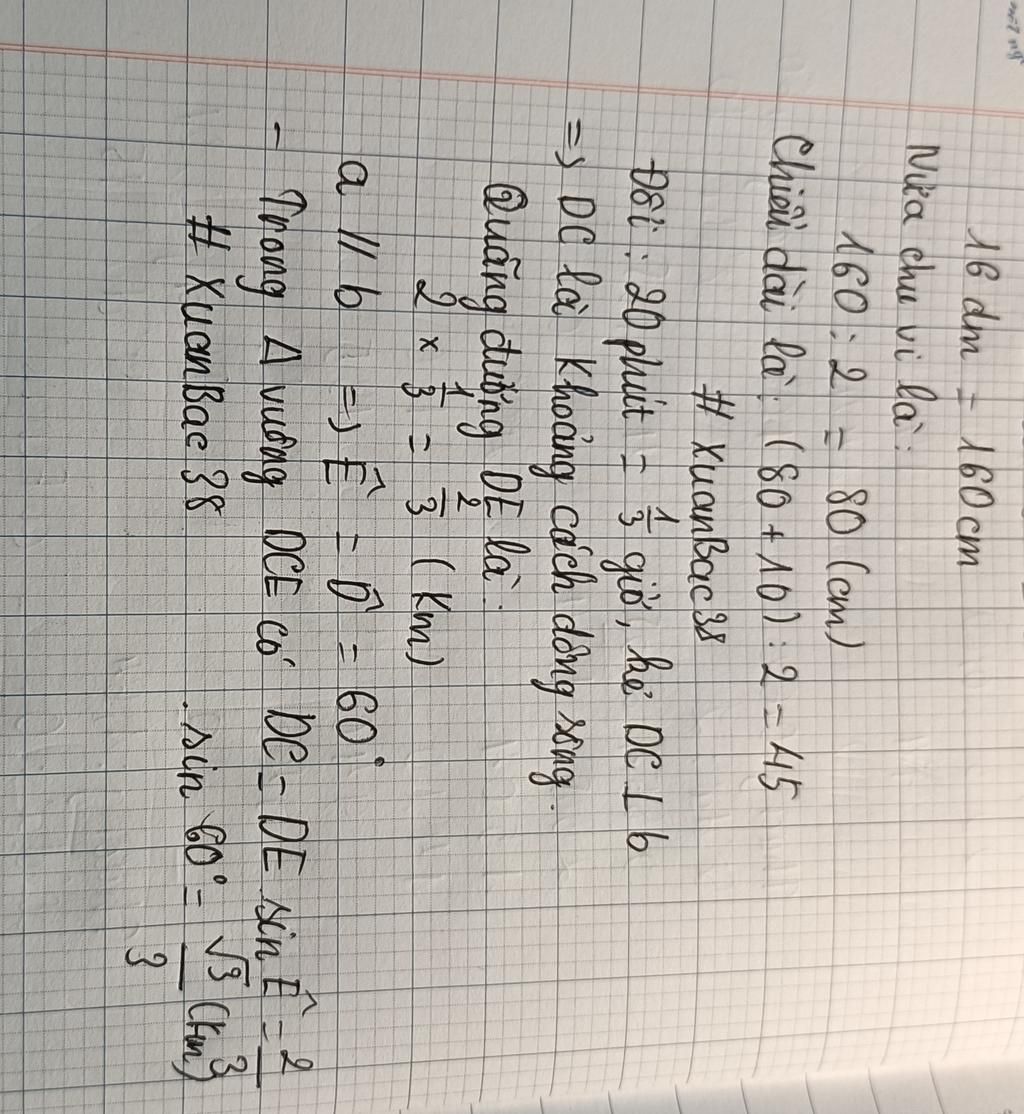 16 dm = 160cm
Nửa chu vi là:
160 : 2 = 80 (cm)
Chiều dài là: (80 + 10) : 2 = 45
# XuanBac38
Đổi: 20 phút = 1/3 giờ, kẻ DC ⊥ b
=> DC là khoảng cách dòng sông.
Quãng đường DE là:
2 × 1/3 = 2/3 (km)
a // b => Ê = D̂ = 60°
- Trong Δ vuông DCE có DC = DE sin Ê = 2/3
# XuanBac38 . sin 60° = √3/3 (km)